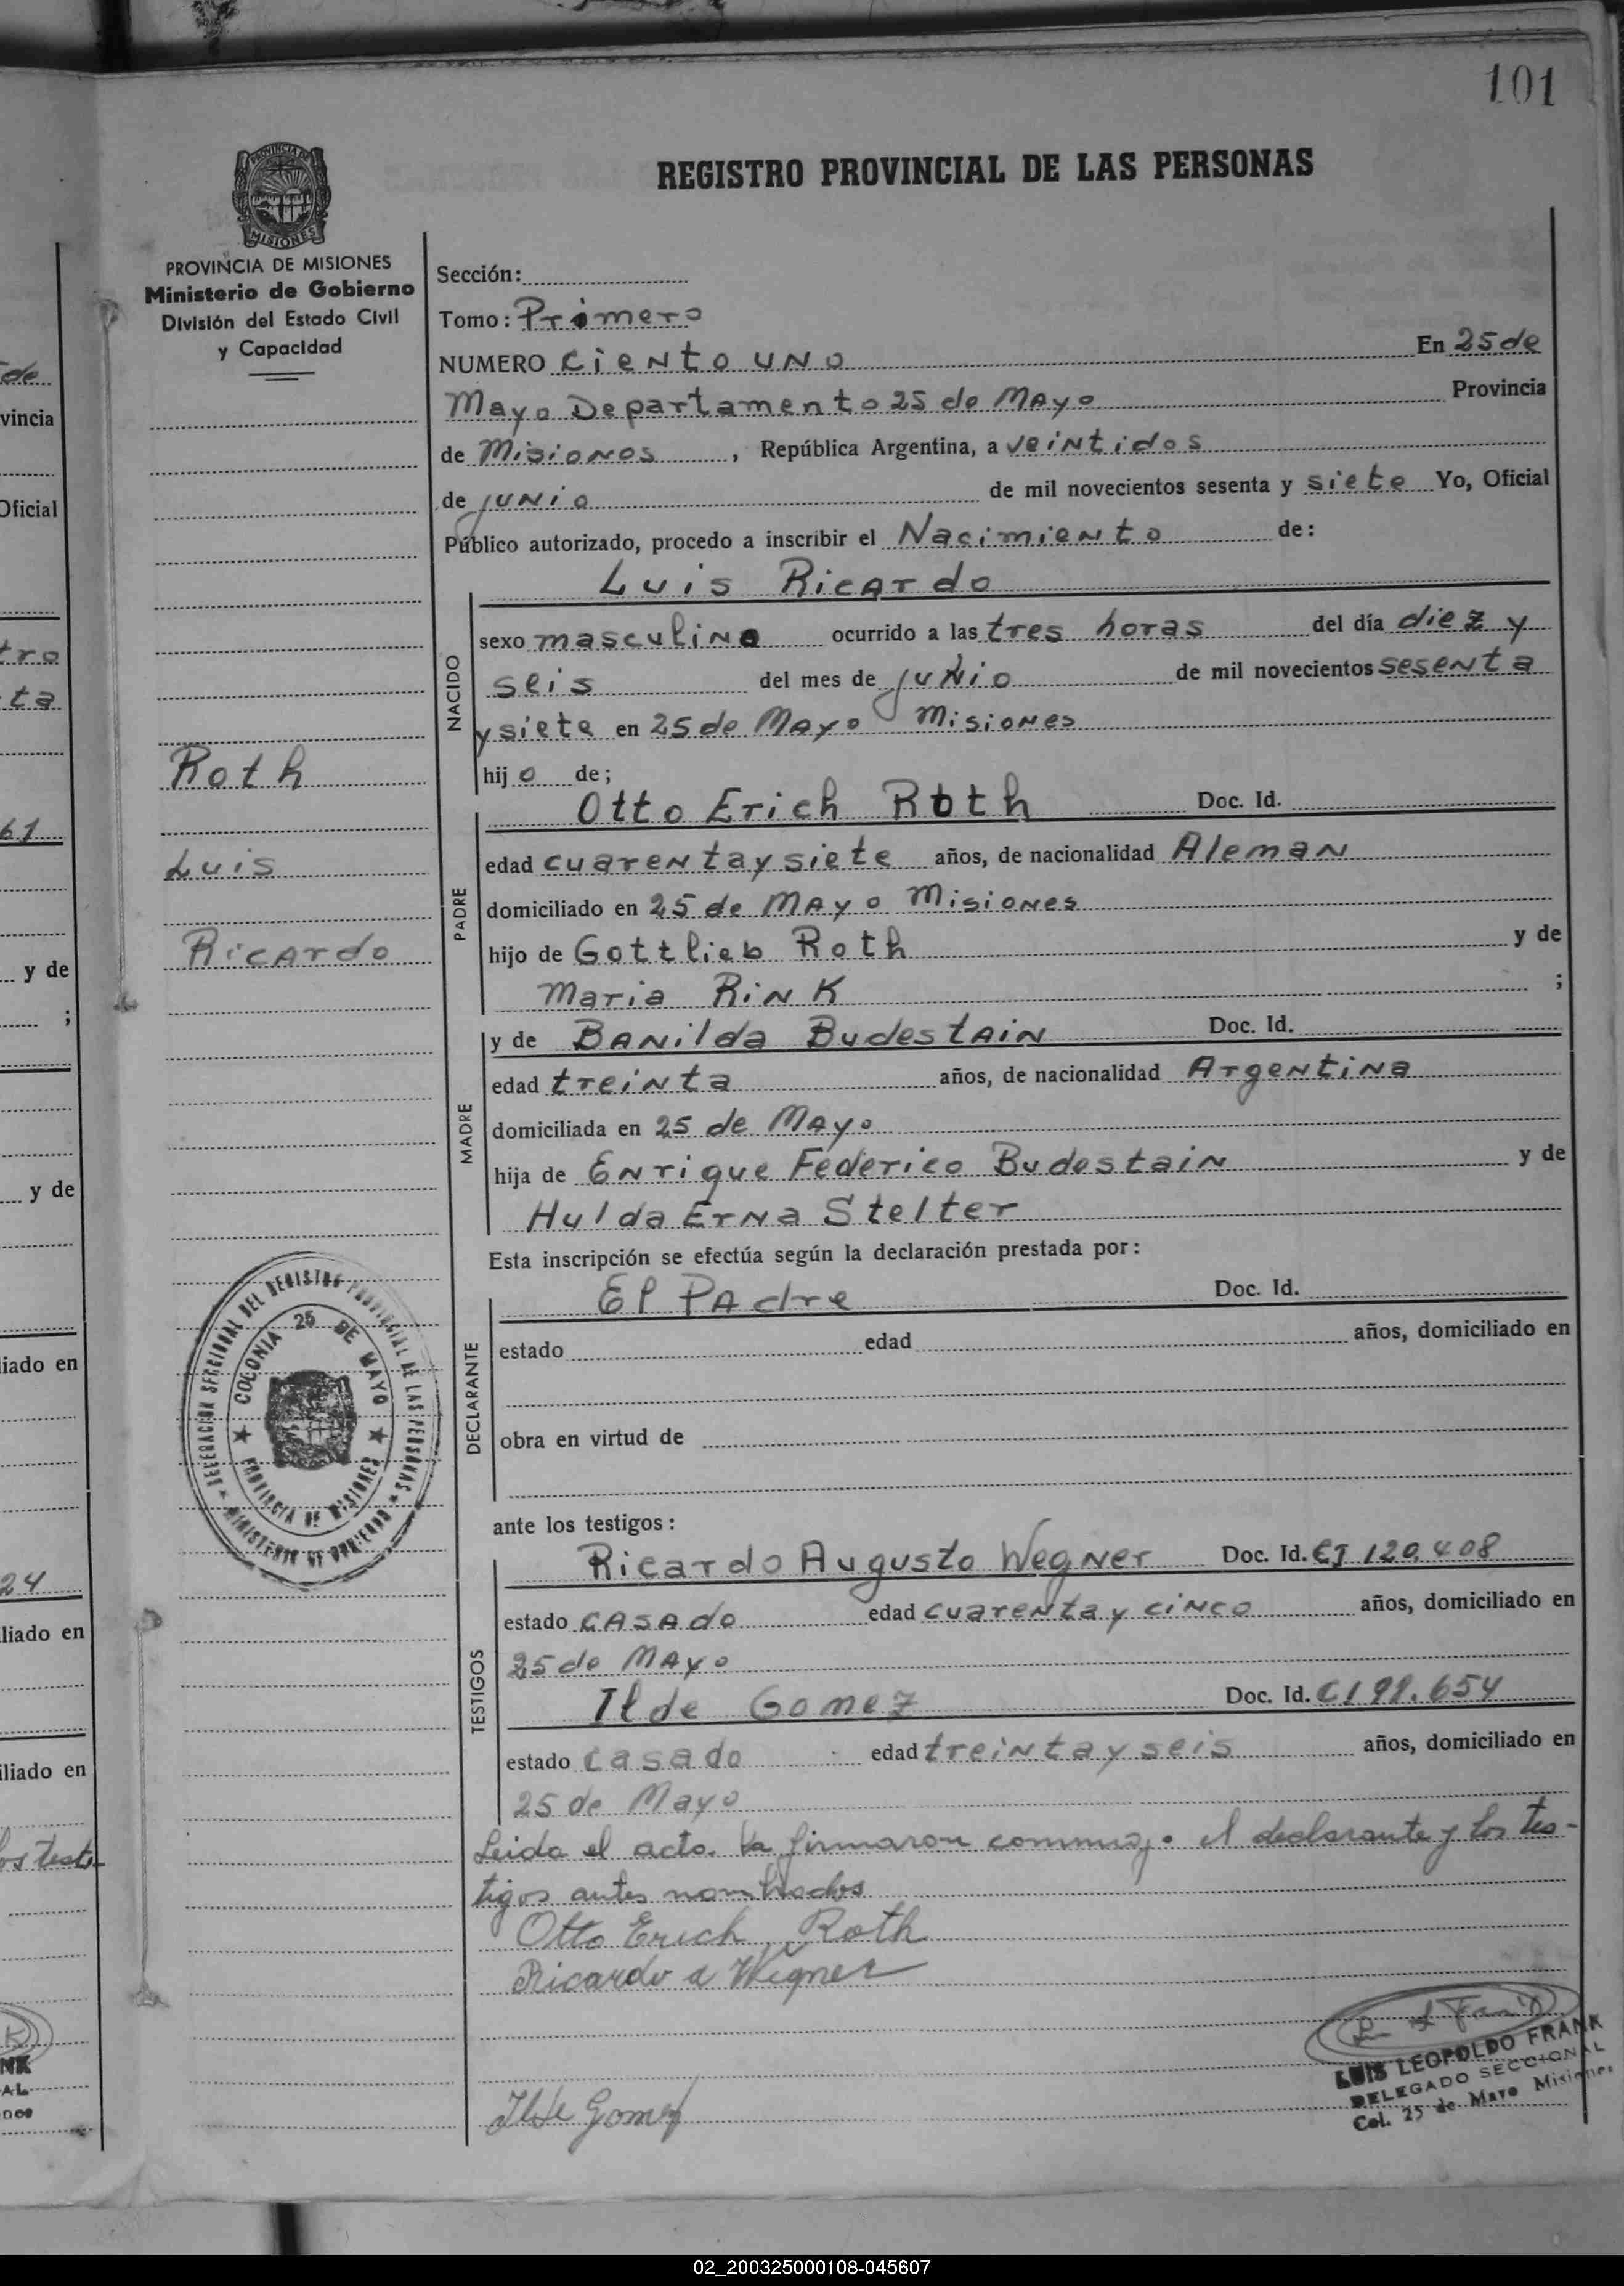 101
REGISTRO PROVINCIAL DE LAS PERSONAS
PROVINCIA DE
MISIONES
PROVINCIA DE MISIONES
Ministerio de Gobierno
División del Estado Civil
y Capacidad
Sección:
Tomo: Primero
NUMERO ciento uno En 25 de
Mayo Departamento 25 de Mayo Provincia
de Misiones, República Argentina, a veintidos
de junio de mil novecientos sesenta y siete Yo, Oficial
Público autorizado, procedo a inscribir el Nacimiento de:
Luis Ricardo
NACIDO
sexo masculino ocurrido a las tres horas del día diez y
seis del mes de junio de mil novecientos sesenta
y siete en 25 de Mayo Misiones
hijo de;
Roth
Luis
Ricardo
Otto Erich Roth Doc. Id.
PADRE
edad cuarenta y siete años, de nacionalidad Aleman
domiciliado en 25 de Mayo Misiones
hijo de Gottlieb Roth y de
Maria Rink ;
y de Banilda Budestain Doc. Id.
MADRE
edad treinta años, de nacionalidad Argentina
domiciliada en 25 de Mayo
hija de Enrique Federico Budestain y de
Hulda Erna Stelter
Esta inscripción se efectúa según la declaración prestada por:
El Padre Doc. Id.
DECLARANTE
estado edad años, domiciliado en
obra en virtud de
DELEGACION SECCIONAL DEL REGISTRO PROVINCIAL DE LAS PERSONAS
MINISTERIO DE GOBIERNO
COLONIA 25 DE MAYO
PROVINCIA DE MISIONES
ante los testigos:
Ricardo Augusto Wegner Doc. Id. CI 120.408
TESTIGOS
estado casado edad cuarenta y cinco años, domiciliado en
25 de Mayo
Ilde Gomez Doc. Id.
estado casado edad treinta y seis años, domiciliado en
25 de Mayo
Leida el acta. la firmaron conmigo. el declarante y los tes-
tigos antes nombrados
Otto Erich Roth
Ricardo a Wegner
Ilde Gomez
LUIS LEOPOLDO FRANK
DELEGADO SECCIONAL
Col. 25 de Mayo Misiones
de
vincia
Oficial
tro
ta
61
y de
;
y de
liado en
24
liado en
iliado en
02_200325000108-045607